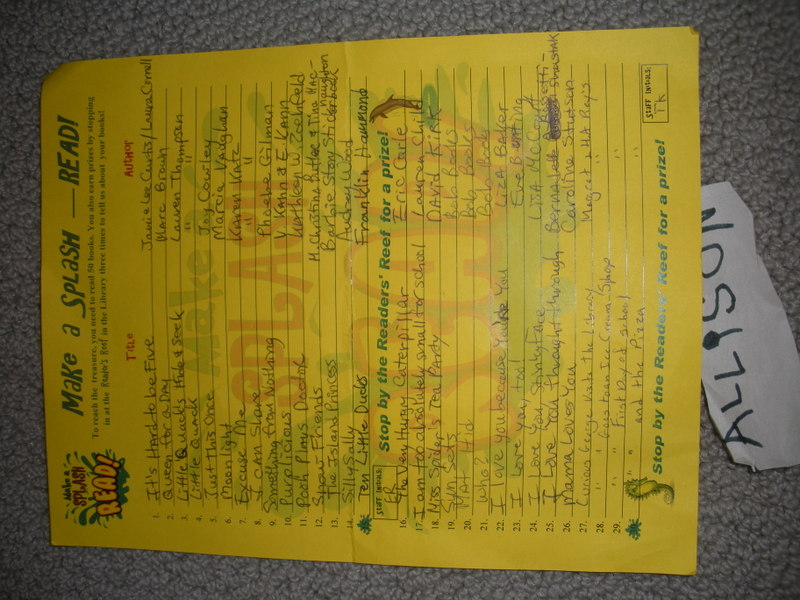 Make a SPLASH —READ!
To reach the treasure, you need to read 50 books. You also earn prizes by stopping
in at the Reader's Reef in the Library three times to tell us about your books!
Make a
SPLASH
READ!
Title Author
1. It's Hard to be Five Jamie Lee Curtis/Laura Cornell
2. Queen for a Day Marc Brown
3. Little Quack's Hide & Seek Lauren Thompson
4. Little Quack " "
5. Just This Once Joy Cowley
6. Moonlight Marcia Vaughan
7. Excuse Me Karen Katz
8. I can Share " "
9. Something from Nothing Phoebe Gilman
10. Purplicious V. Kann & E. Kann
11. Pooh Plays Doctor Kathleen W. Zoehfeld
12. Snow Friends M. Christina Butler & Tina Mac-
naughton
13. The Island Princess Barbie Story Stickerbook
14. Silly Sally Audrey Wood
Ten Little Ducks Franklin Hammond
STAFF INITIALS:
Stop by the Readers' Reef for a prize!
16. The Very Hungry Caterpillar Eric Carle
17. I am too absolutely small for school Lauren Child
18. Miss Spider's Tea Party DAVID KIRK
19. Sets Bob Books
20. MAT Bob Books
21. Who? Bob Books
22. I love you because You're You LIZA Baker
23. I Love You, too! Eve Bunting
24. I Love You Stinky Face LISA McCourt
25. I Love You through & through Bernadette Rossetti-
SHUSTAK
26. Mama Loves You Caroline Stutson
27. Curious George Visits the Library Margret & H.A. Rey's
28. " " Goes to an Ice Cream Shop " "
29. " " First Day of School " "
" and the Pizza " "
STAFF INITIALS:
TK
Stop by the Readers' Reef for a prize!
ALLYSON